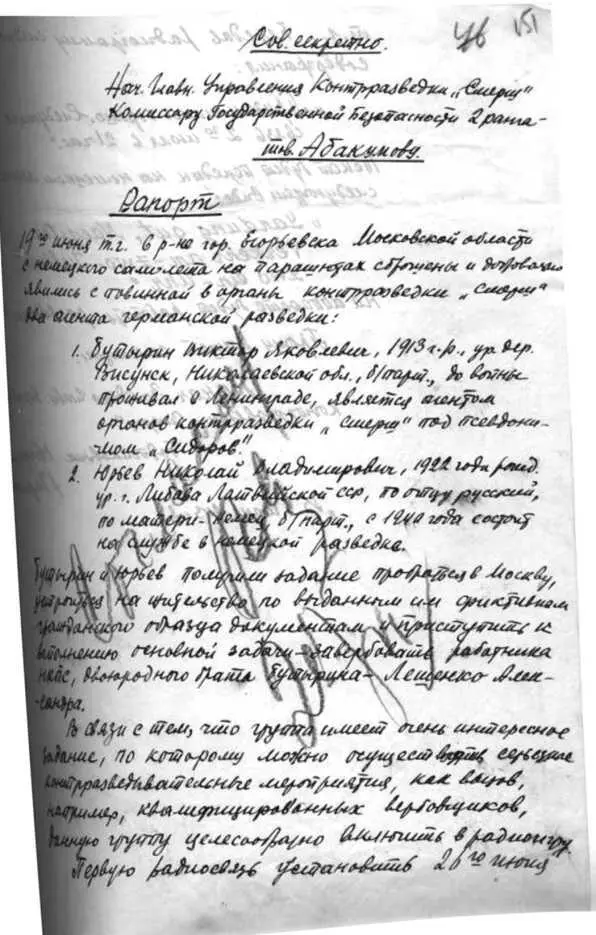 Сов. секретно.
76
151
Нач. Главн. Управления Контрразведки „Смерш"
Комиссару Государственной Безопасности 2 ранга-
тов. Абакумову.
Рапорт
19го июня т.г. в р-не гор. Егорьевска Московской области
с немецкого самолета на парашютах сброшены и добровольно
явились с повинной в органы контрразведки „Смерш"
два агента германской разведки:
1. Бутырин Виктор Яковлевич, 1913 г.р., ур. дер.
Висунск, Николаевской обл., б/парт., до войны
проживал в Ленинграде, является агентом
органов контрразведки „Смерш" под псевдони-
мом „Сидоров".
2. Юрьев Николай Владимирович, 1922 года рожд.
ур. г. Либава Латвийской ССР, по отцу русский,
по матери-немец, б/парт., с 1940 года состоит
на службе в немецкой разведке.
Бутырин и Юрьев получили задание пробраться в Москву,
устроиться на жительство по выданным им фиктивным
гражданского образца документам и приступить к
выполнению основной задачи-завербовать работника
НКПС, двоюродного брата Бутырина-Лещенко Алек-
сандра.
В связи с тем, что группа имеет очень интересное
задание, по которому можно осуществить серьезные
контрразведывательные мероприятия, как вызов,
например, квалифицированных вербовщиков,
данную группу целесообразно включить в радиоигру.
Первую радиосвязь установить 26го июня